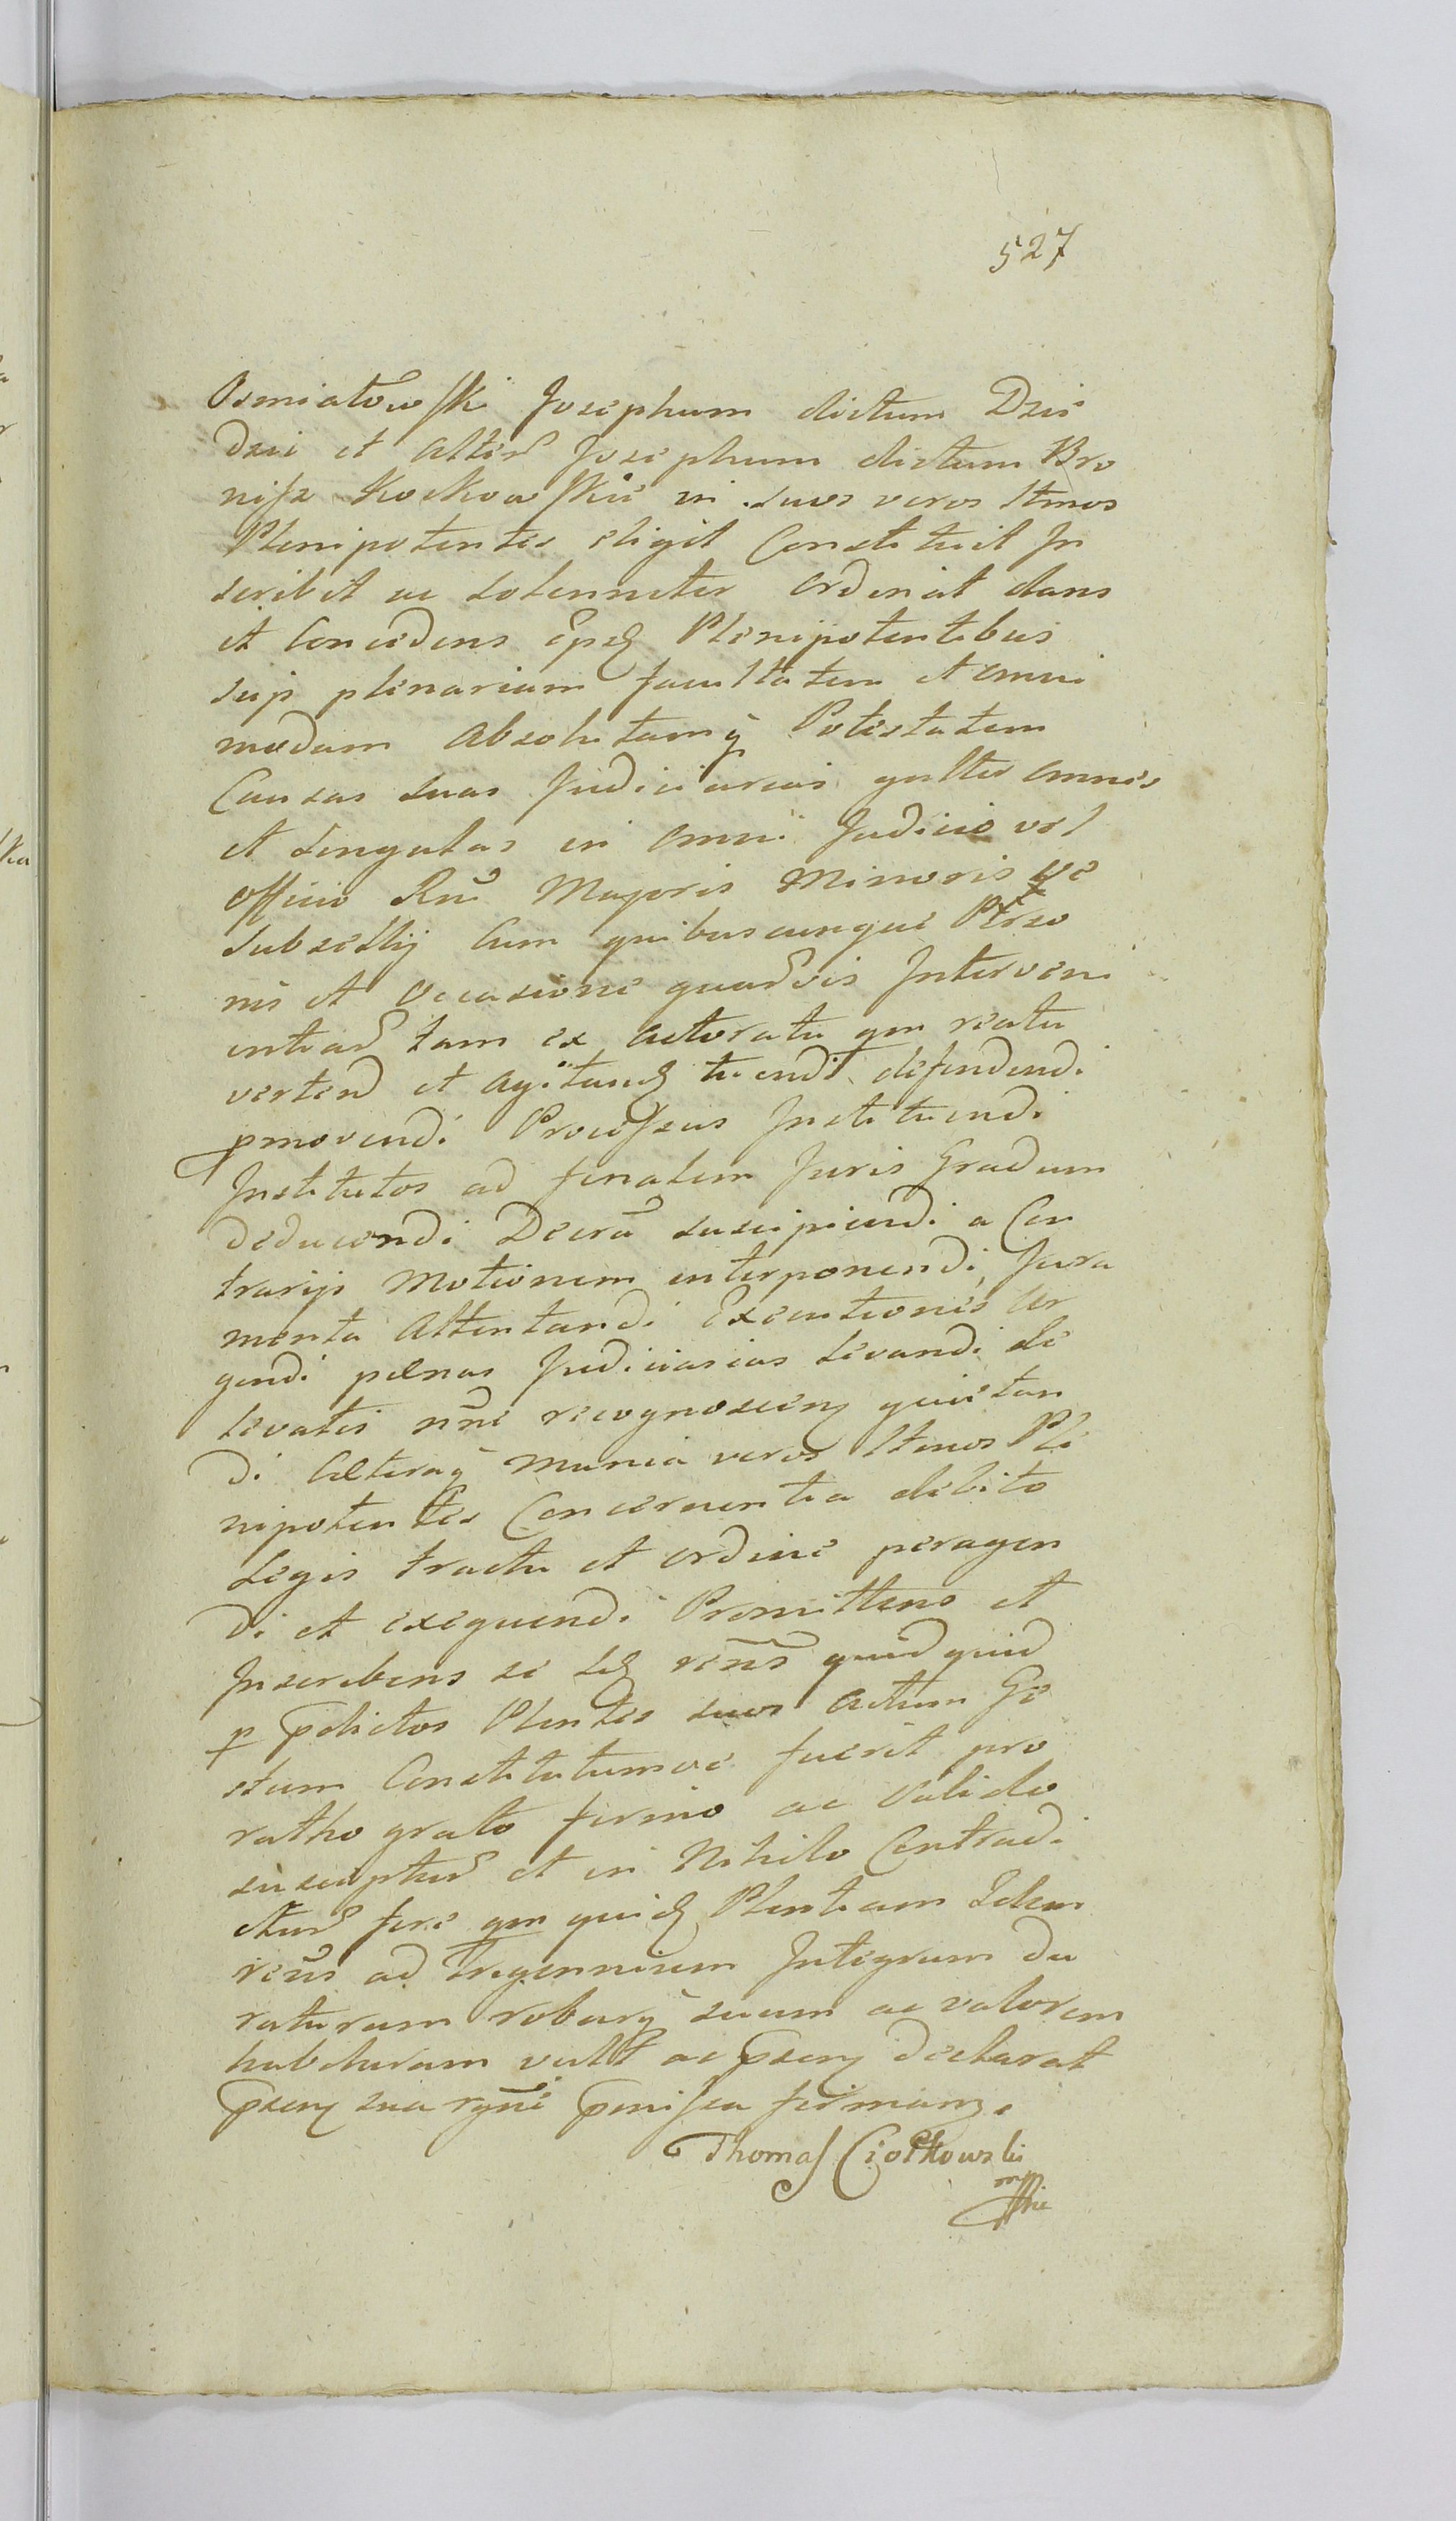 527
Osmiatowski Josephum dictum Dzie
dzic et alter Josephum dictum Bro
nisz Koskowskie in suos veros ltmos
Plenipotentes eligit Constituit In
scribit ac solenniter ordinat dans
et Concedens ejsdẽ Plenipotentibus
suis plenariam facultatem et omni
modam absolutamq̃ Potestatem
Causas suas Judiciarias gnlter omnes
et singulas in omni Judicio vel
officio Rni Majoris Minoris ve
subsellij cum quibuscunque Perso
nis et occasione quarvis Interveni
entiar tam ex actoratu qm reatu
verten et agitand tuendi defendendi
pmovendi Processus Instituendi
Institutos ad finalem Juris Gradum
deducendi Decra suscipiendi a Con
trarijs Motionem interponendi Jura
menta attentandi Executiones Ur
gendi pœnas Judiciarias levandi de
levatis nne recognoscen quietan
di Cæteraq̃ munia veros ltmos Ple
nipotentes Concernentia debito
Legis tractu et ordine peragen
di et exequendi Promittens et
Inscribens se id recns quidquid
p pdictos Plentes suos actum Ge
stum Constitutumve fuerit pro
ratho grato firmo ac valido
suscepturŭ et in Nihilo Contradi
cturŭ fore qm quid Plentiam Idem
recns ad Trigennium Integrum du
raturam roburq̃ suum ac valorem
habituram vult ac psen declarat
psen sua rgne pmissa firman.
Thomas Ciołkowski
mpp